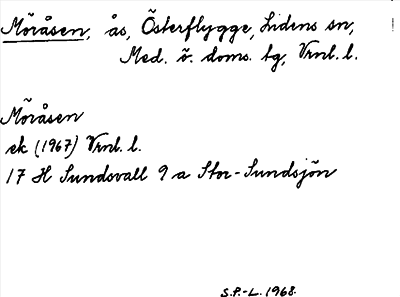 Möråsen, ås, Österflygge, Lidens sn,
Med. ö. doms. tg, Vrnl. l.
Möråsen
ek (1967) Vrnl. l.
17 H Sundsvall 9 a Stor-Sundsjön
S.P.-L. 1968.